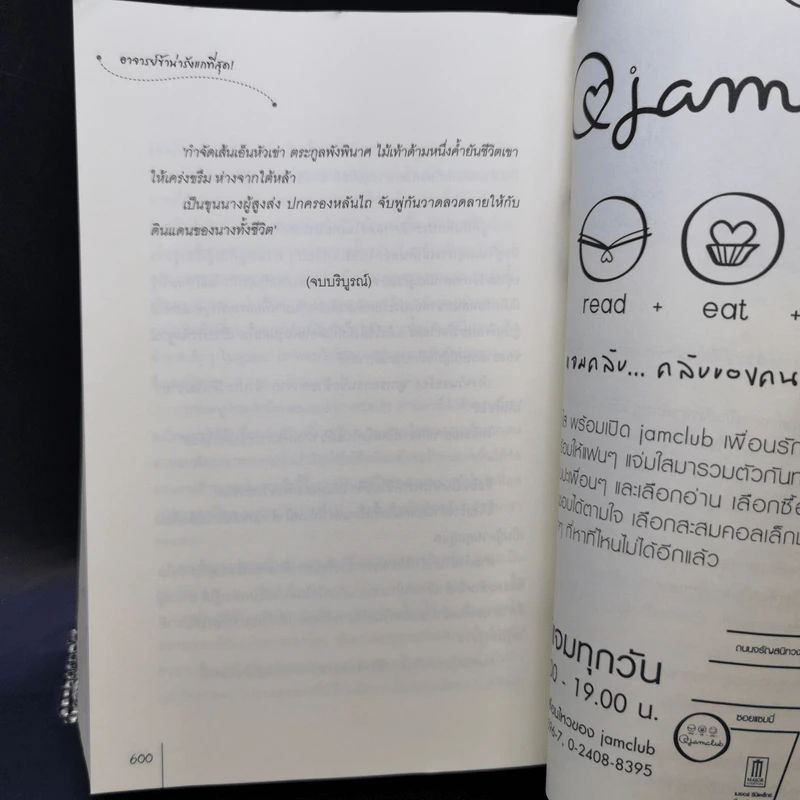 อาจารย์ข้าน่ารังแกที่สุด!
'กำจัดเส้นเอ็นหัวเข่า ตระกูลพังพินาศ ไม้เท้าด้ามหนึ่งค้ำยันชีวิตเขา
ให้เคร่งขรึม ห่างจากใต้หล้า
เป็นขุนนางผู้สูงส่ง ปกครองหลันไถ จับพู่กันวาดลวดลายให้กับ
ดินแดนของนางทั้งชีวิต'
(จบบริบูรณ์)
600
@jam
read + eat +
แจมคลับ... คลับของคน
พร้อมเปิด jamclub เพื่อนรัก
ให้แฟนๆ แจ่มใสมารวมตัวกัน
เพื่อนๆ และเลือกอ่าน เลือกซื้อ
ได้ตามใจ เลือกสะสมคอลเล็ก
ๆ ที่หาที่ไหนไม่ได้อีกแล้ว
ทุกวัน
- 19.00 น.
ไหวของ jamclub
96-7, 0-2408-8395
ถนนจรัญสนิทวง
ซอยแซมมี่
@jamclub
MAJOR
เมเจอร์ ซีนีเพล็กซ์